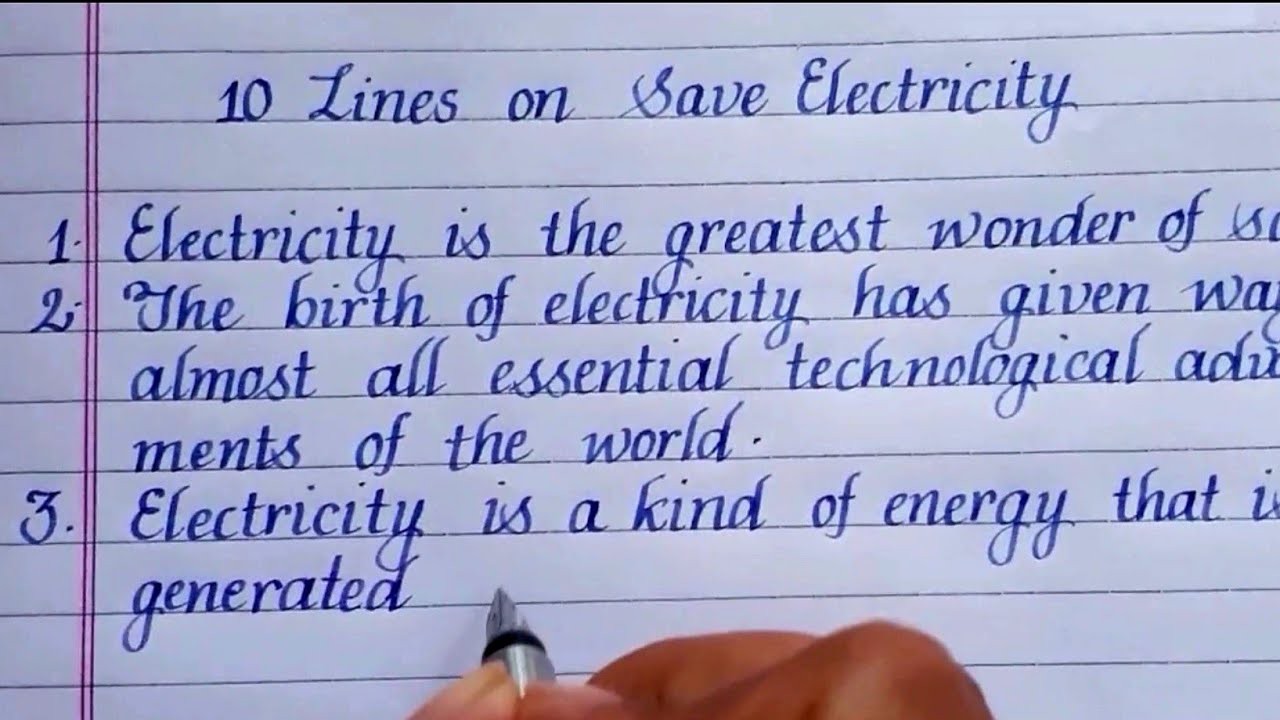 10 Lines on Save Electricity
1. Electricity is the greatest wonder of
2. The birth of electricity has given
almost all essential technological
ments of the world.
3. Electricity is a kind of energy that
generated